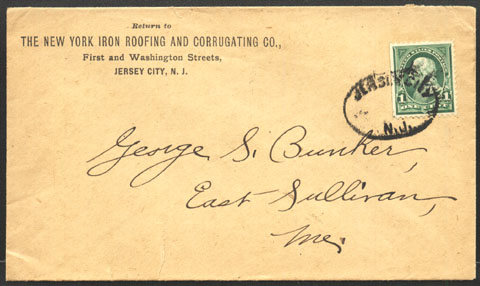 Return to
THE NEW YORK IRON ROOFING AND CORRUGATING CO.,
First and Washington Streets,
JERSEY CITY, N. J.
JERSEY CITY
N.J.
1 1
ONE CENT
George S. Bunker,
East Sullivan,
Me.